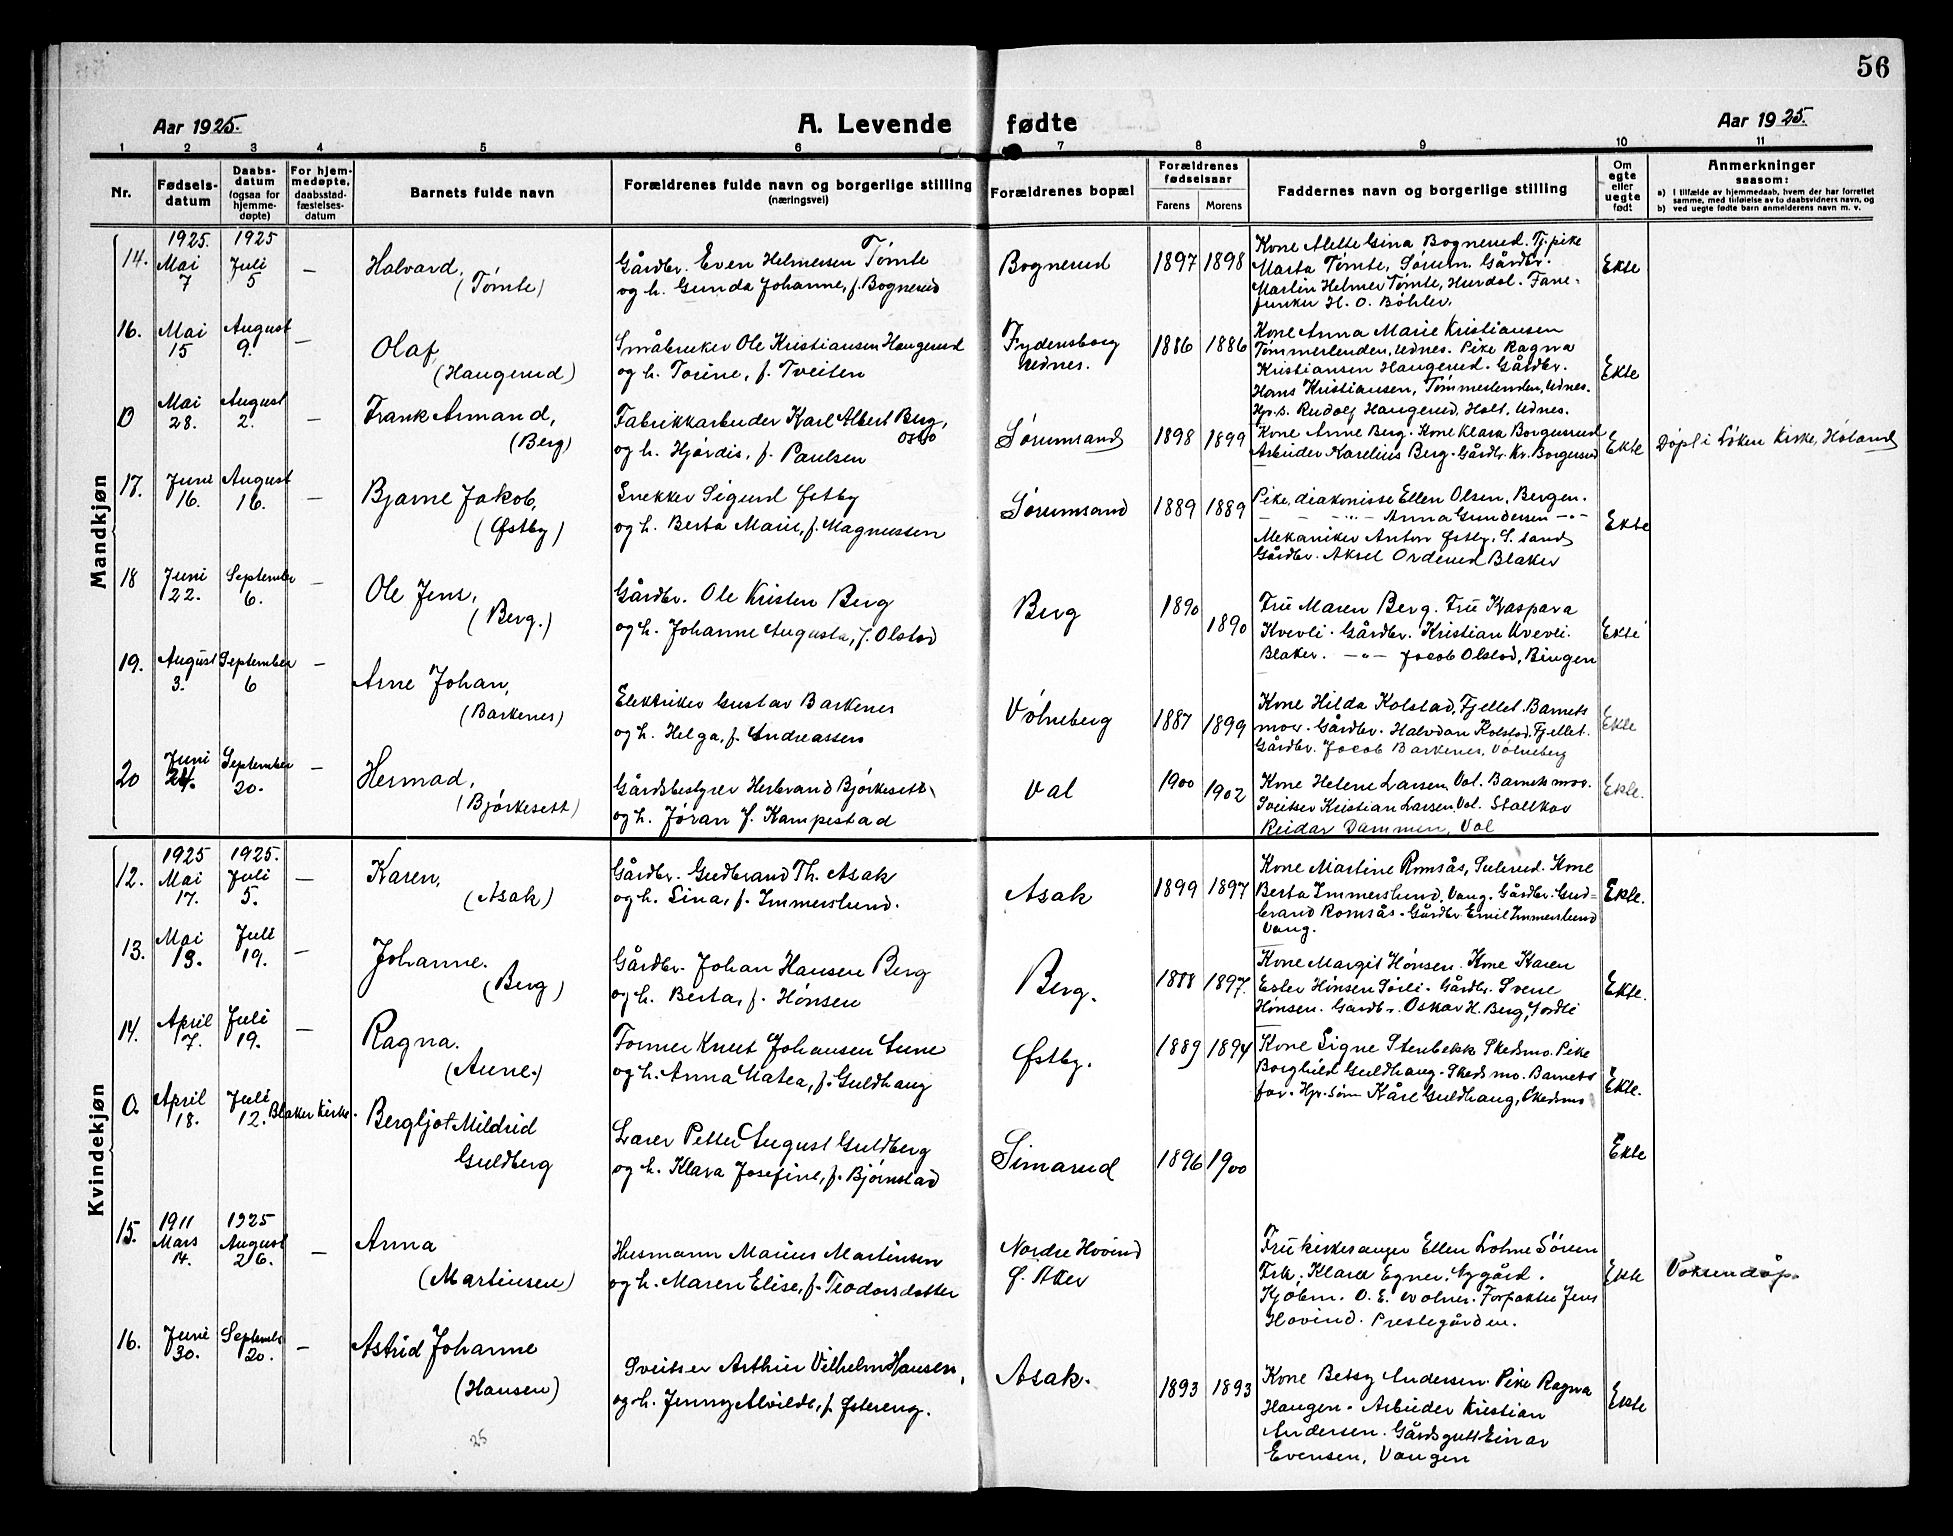 56
Aar 1925.
A. Levende fødte
Aar 1925.
1 2 3 4 5 6 7 8 9 10 11
Nr.
Fødsels-
datum
Daabs-
datum
(ogsaa for
hjemme-
døpte)
For hjem-
medøpte,
daabsstad-
fæstelses-
datum
Barnets fulde navn
Forældrenes fulde navn og borgerlige stilling
(næringsvei)
Forældrenes bopæl
Forældrenes
fødselsaar
Farens Morens
Faddernes navn og borgerlige stilling
Om
egte
eller
uegte
født
Anmerkninger
saasom:
a) I tilfælde av hjemmedaab, hvem der har forrettet
samme, med tilføielse av to daabsvidners navn, og
b) ved uegte fødte barn anmelderens navn m. v.
Mandkjøn
14.
1925.
Mai
7
1925
Juli
5
—
Halvard,
(Tømte)
Gårdbr. Even Helmersen Tømte
og h. Gunda Johanne, f. Bognerud
Bognerud
1897 1898
Kone Alette Gina Bognerud. Tj.pike
Marta Tømte, Sørum. Gårdbr.
Martin Helmer Tømte, Hurdal. Fane-
junker H. O. Bøhler.
Ekte
16.
Mai
15
August
9.
—
Olaf,
(Haugerud)
Småbruker Ole Kristiansen Haugerud
og h. Torine, f. Tveiten
Fydensborg
Udnes.
1886 1886
Kone Anna Marie Kristiansen
Tømmerlenden, Udnes. Pike Ragna
Kristiansen Haugerud. Gårdbr.
Hans Kristiansen, Tømmerlenden, Udnes.
Gp.s. Rudolf Haugerud, Holt, Udnes.
Ekte
0
Mai
28.
August
2.
—
Frank Armand,
(Berg)
Fabrikkarbeider Karl Albert Berg,
Oslo
og h. Hjørdis, f. Paulsen
Sørumsand
1898 1899
Kone Anne Berg. Kone Klara Borgerud
Arbeider Karelius Berg. Gårdbr. Kr. Borgerud
Ekte
Døpt i Løken Kirke, Høland
17.
Juni
16.
August
16.
—
Bjarne Jakob,
(Østby)
Snekker Sigurd Østby
og h. Berta Marie, f. Magnussen
Sørumsand
1889 1889
Pike, diakonisse Ellen Olsen, Bergen.
— — — " — Anna Gundersen — " —
Mekaniker Anton Østby, S.sand
Gårdbr. Aksel Orderud Blaker
Ekte
18
Juni
22.
September
6.
—
Ole Jens,
(Berg.)
Gårdbr. Ole Kristen Berg
og h. Johanne Augusta, f. Olstad
Berg
1890
1890
Fru Maren Berg. Fru Kaspara
Kvevli. Gårdbr. Kristian Kvevli.
Blaker. — " — Jacob Olstad, Bingen
Ekte
19.
August
3.
September
6
—
Arne Johan,
(Barkenes)
Elektriker Gustav Barkenes
og h. Helga, f. Andreassen
Vølneberg
1887 1899
Kone Hilda Kolstad, Fjellet. Barnets
mor. Gårdbr. Halvdan Kolstad, Fjellet.
Gårdbr. Jacob Barkenes, Vølneberg
Ekte
20
Juni
24.
September
20.
—
Hermod,
(Bjørkesett)
Gårdsbestyrer Herbrand Bjørkesett
og h. Jøran f. Kampestad
Val
1900 1902
Kone Helene Larsen, Val. Barnets mor.
Sveitser Kristian Larsen, Val. Stallkar
Reidar Dammen, Val
Ekte.
Kvindekjøn
12.
1925
Mai
17.
1925.
Juli
5.
—
Karen,
(Asak)
Gårdbr. Gudbrand Th. Asak
og h. Lina, f. Immerslund.
Asak
1899 1897
Kone Martine Romsås, Sulerud. Kone
Berta Immerslund, Vang. Gårdbr. Gud-
brand Romsås. Gårdbr. Emil Immerslund
Vang.
Ekte.
13.
Mai
13.
Juli
19.
—
Johanne.
(Berg)
Gårdbr. Johan Hansen Berg
og h. Berta, f. Hønsen
Berg.
1888 1897.
Kone Margit Hønsen. Kone Karen
Ester Hønsen Sørli. Gårdbr. Svene
Hønsen. Gårdbr. Oskar H. Berg, Jordli
Ekte.
14.
April
7.
Juli
19.
—
Ragna.
(Aune.)
Former Knut Johansen Aune
og h. Anna Matea, f. Guldhaug
Østby.
1889 1894
Kone Signe Stenbekk Skedsmo. Pike
Borghild Guldhaug. Skedsmo. Barnets
far. Gp. søn Kåre Guldhaug, Skedsmo
Ekte.
0.
April
18.
Juli
12.
Blaker Kirke.
Bergljot Mildrid
Guldberg
Lærer Petter August Guldberg
og h. Klara Josefine, f. Bjørnstad
Simarud
1896 1900
Ekte
15.
1911
Mars
14.
1925
August
26.
—
Anna
(Martinsen)
Husmann Marius Martinsen
og h. Maren Elise, f. Teodorsdatter
Nordre Hovind
Ø. Aker
Fru kirkesanger Ellen Lohne Sørum
Frk. Klara Egner, Nygård.
Kjøbm. O. E. Wolner. Forpakter Jens
Hovind. Prestegården.
Ekte
Voksendåp.
16.
Juni
30.
September
20.
—
Astrid Johanne
(Hansen)
Sveitser Arthur Vilhelm Hansen,
og h. Jenny Alvilde, f. Østereng.
Asak.
1893 1893
Kone Betsy Andersen. Pike Ragna
Haugen. Arbeider Kristian
Andersen. Gårdsgutt Einar
Evensen, Vangen
Ekte
25